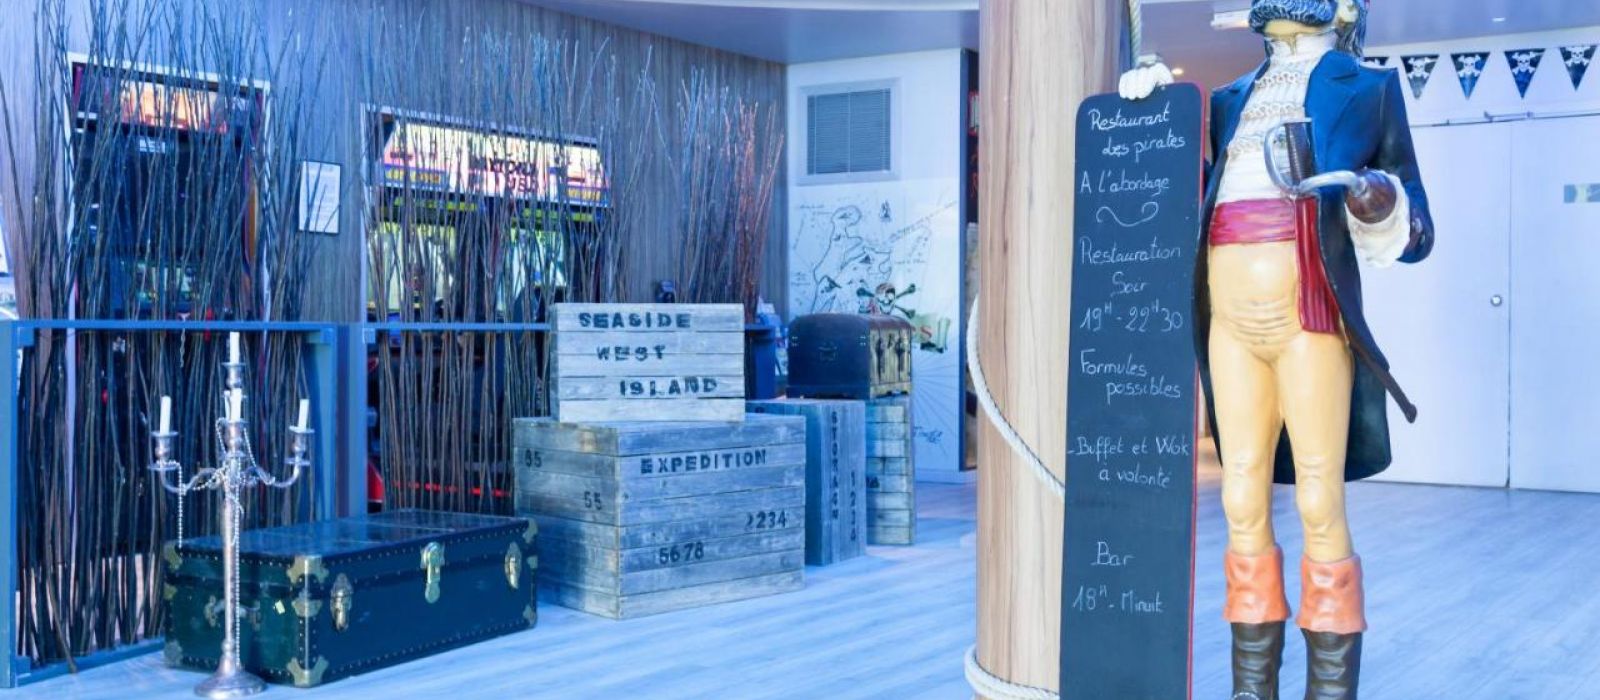 SEASIDE
WEST
ISLAND
95
EXPEDITION
55
1234
5678
1234
Restaurant
des pirates
A l'abordage
Restauration
Soir
19H-22H30
Formules
possibles
-Buffet et Wok
à volonté
Bar
18H-Minuit